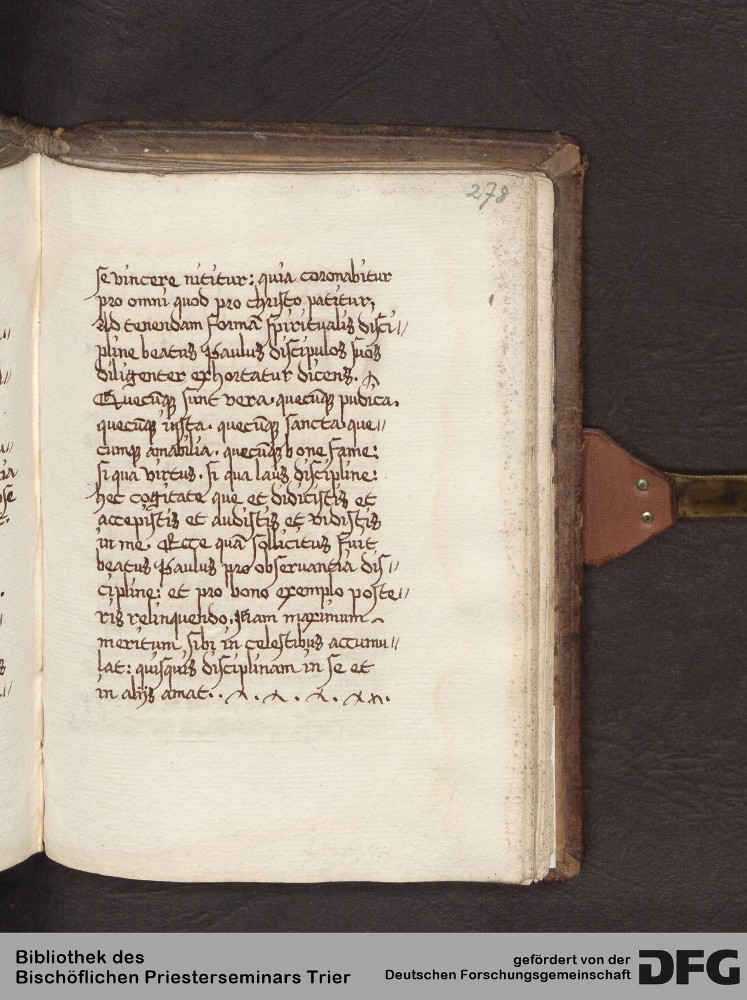 278
se vincere nititur: quia coronabitur
pro omni quod pro christo patitur,
Ad tenendam formā spiritualis disci//
pline beatus Paulus discipulos suos
diligenter exhortatur dicens.
Quecūqꝫ sunt vera. quecūqꝫ pudica.
quecūqꝫ iusta. quecūqꝫ sancta. que//
cumqꝫ amabilia. quecūqꝫ bone fame:
si qua virtus. si qua laus discipline:
hec cogitate que et didicistis et
accepistis et audistis et vidistis
in me. Ecce quā sollicitus fuit
beatus Paulus pro observantia dis//
cipline: et pro bono exemplo poste//
ris relinquendo. Nam maximum
meritum sibi in celestibus accumu//
lat: quisquis disciplinam in se et
in alijs amat.
Bibliothek des
Bischöflichen Priesterseminars Trier
gefördert von der
Deutschen Forschungsgemeinschaft
DFG